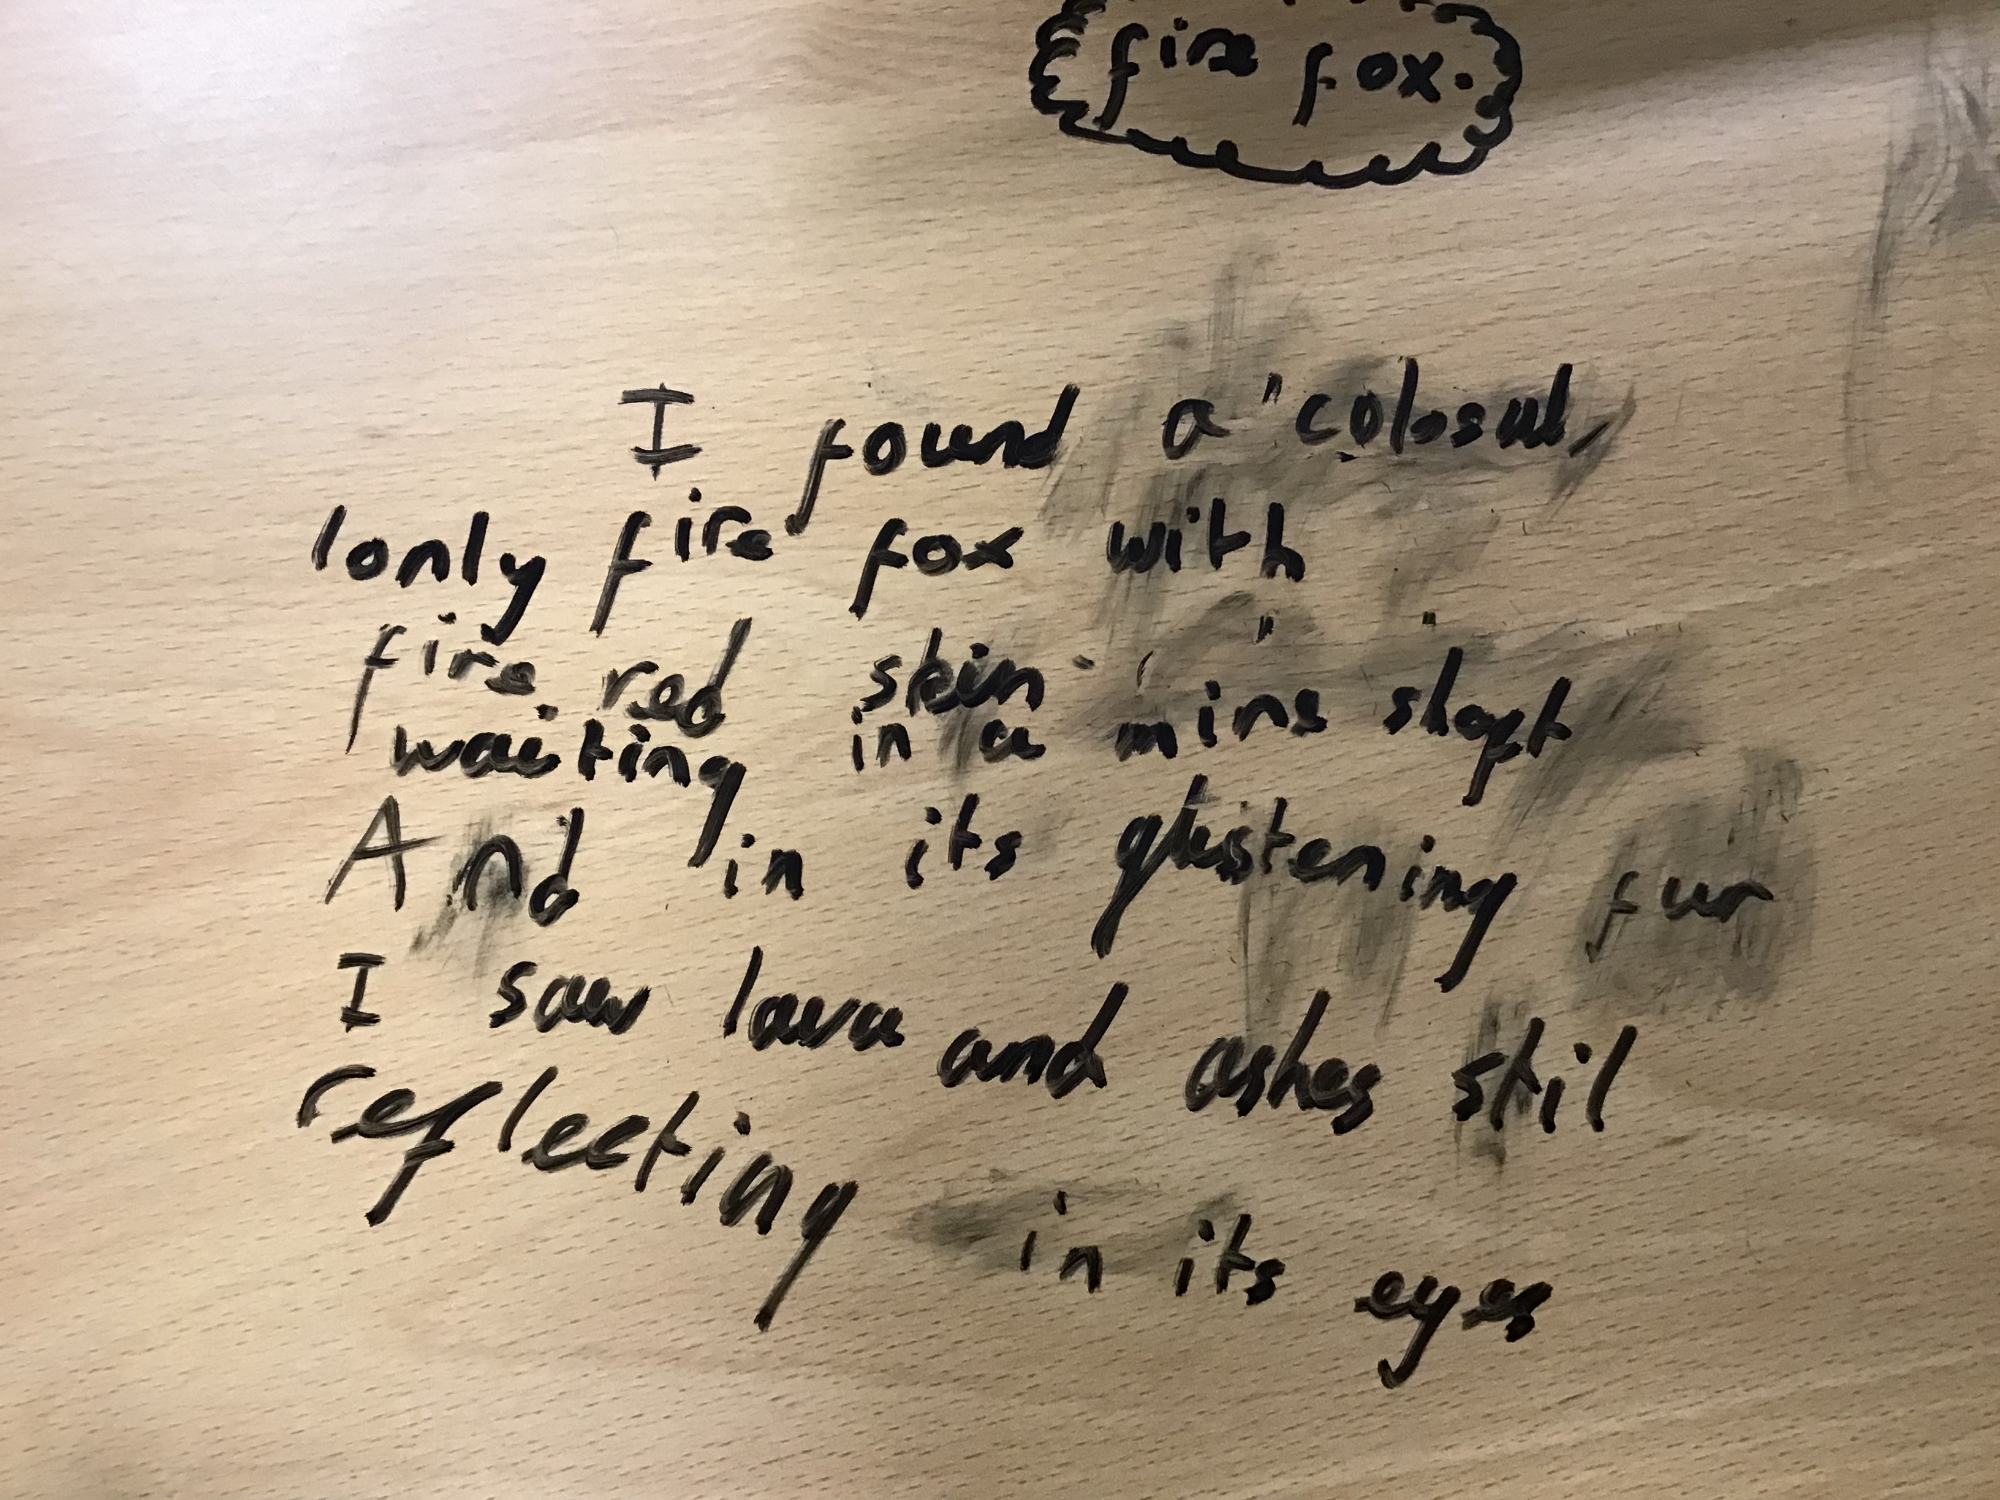 fire fox.
I found a colosal,
lonly fire fox with
fire red skin
waiting in a mine shaft
And in its glistening fur
I saw lava and ashes stil
reflecting in its eyes